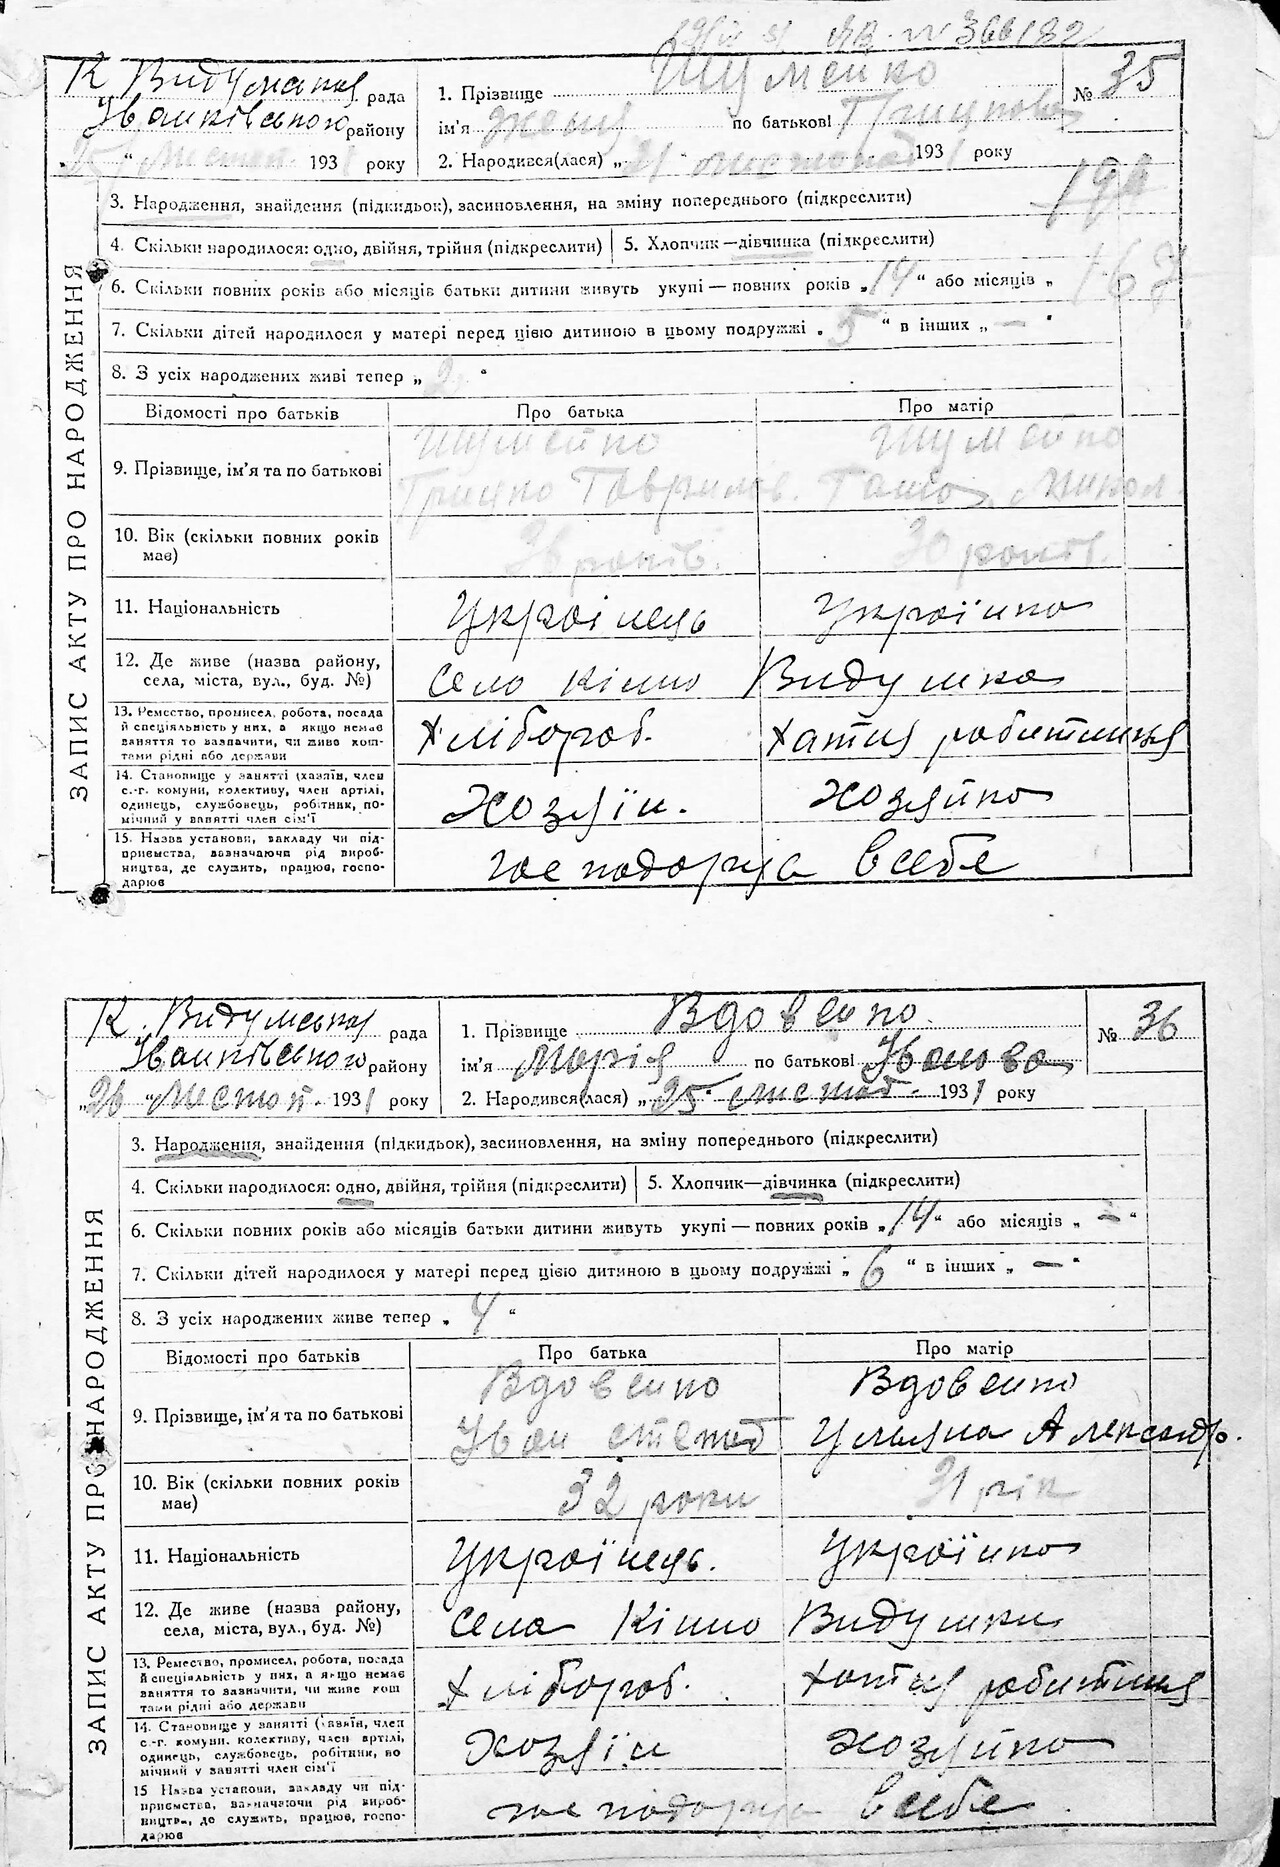 № 366182
К. Видумська рада
Іванківського району
"25" листоп. 1931 року
1. Прізвище Шумейко
ім'я Женя по батькові Грицькова
2. Народився(лася) „21" листопад 1931 року
№ 35
194
167
3. Народження, знайдення (підкидьок), засиновлення, на зміну попереднього (підкреслити)
4. Скільки народилося: одно, двійня, трійня (підкреслити) 5. Хлопчик—дівчинка (підкреслити)
6. Скільки повних років або місяців батьки дитини живуть укупі — повних років „14" або місяців „
7. Скільки дітей народилося у матері перед цією дитиною в цьому подружжі „5" в інших „—"
8. З усіх народжених живі тепер „2"
Відомості про батьків Про батька Про матір
9. Прізвище, ім'я та по батькові Шумейко Шумейко
Грицко Гаврилов. Ганна Микол.
10. Вік (скільки повних років має) 36 років. 30 років.
11. Національність Украінець Українка
12. Де живе (назва району, села, міста, вул., буд. №) Село Кілно Видумка
13. Ремество, промисел, робота, посада й спеціяльність у них, а якщо немає заняття то зазначити, чи живе коштами рідні або держави Хлібороб. Хатня работниця
14. Становище у занятті (хазяїн, член с.-г. комуни, колективу, член артілі, одинець, службовець, робітник, помічний у занятті член сім'ї Хозяїн. Хозяйка
15. Назва установи, закладу чи підприємства, зазначаючи рід виробництва, де служить, працює, господарює господорця всебе
ЗАПИС АКТУ ПРО НАРОДЖЕННЯ
К. Видумська рада
Іванківського району
„26" листоп. 1931 року
1. Прізвище Вдовенко
ім'я Марія по батькові Іванова
2. Народився(лася) „25" листоп. 1931 року
№ 36
3. Народження, знайдення (підкидьок), засиновлення, на зміну попереднього (підкреслити)
4. Скільки народилося: одно, двійня, трійня (підкреслити) 5. Хлопчик—дівчинка (підкреслити)
6. Скільки повних років або місяців батьки дитини живуть укупі — повних років „14" або місяців „—"
7. Скільки дітей народилося у матері перед цією дитиною в цьому подружжі „6" в інших „—"
8. З усіх народжених живе тепер „4"
Відомості про батьків Про батька Про матір
9. Прізвище, ім'я та по батькові Вдовенко Вдовенко
Іван Степов Уляна Александр.
10. Вік (скільки повних років має) 32 роки 31 рік
11. Національність Українець. Українка
12. Де живе (назва району, села, міста, вул., буд. №) Села Кілно Видумки
13. Ремество, промисел, робота, посада й спеціяльність у них, а якщо немає заняття то зазначити, чи живе коштами рідні або держави Хлібороб. Хатня работниця
14. Становище у занятті (хазяїн, член с.-г. комуни, колективу, член артілі, одинець, службовець, робітник, помічний у занятті член сім'ї Хозяїн Хозяйка
15 Назва установи, закладу чи підприємства, зазначаючи рід виробництва, де служить, працює, господарює господорця всебе
ЗАПИС АКТУ ПРО НАРОДЖЕННЯ